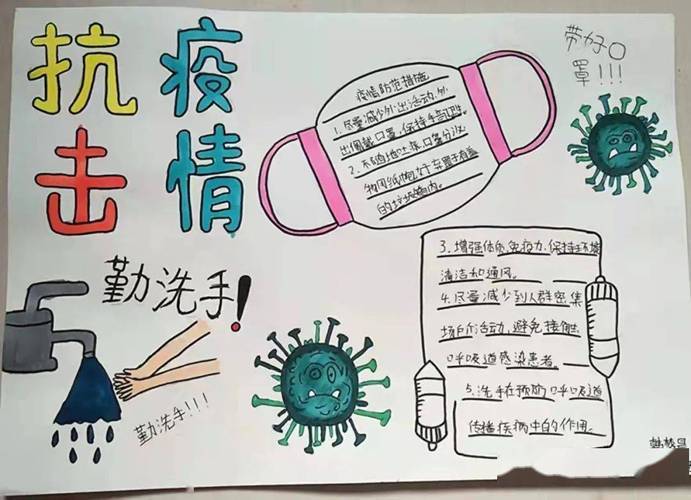 抗疫
击情
带好口
罩!!!
疫情防范措施
1.尽量减少外出活动,外
出佩戴口罩,保持手部卫生
2.不随地吐痰,口鼻分泌
物用纸包好弃置于有盖
的垃圾箱内。
勤洗手!
勤洗手!!!
3.增强体质,免疫力,保持环境
清洁和通风。
4.尽量减少到人群密集
场所活动,避免接触
呼吸道感染患者。
5.洗手在预防呼吸道
传播疾病中的作用。